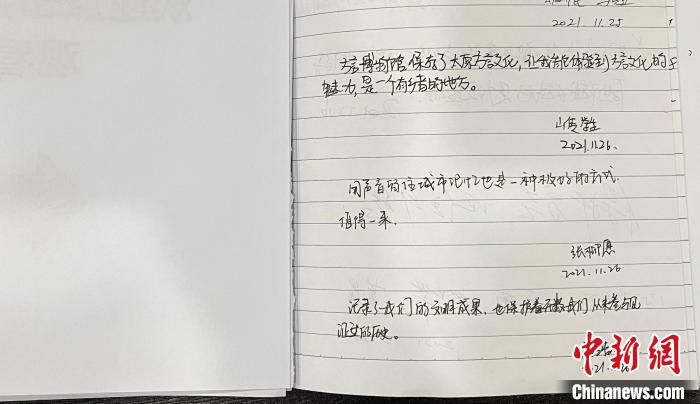 2021.11.25
方言博物馆保存了太原方言文化，让我能体验到方言文化的
魅力，是一个有意思的地方。
山传学生
2021.11.26.
用声音留住城市记忆也是一种极好的方式.
值得一来.
张柳愿
2021.11.26
记录了我们的文明成果，也保护着无数我们从未参与见
证过的历史。
中新网
Chinanews.com